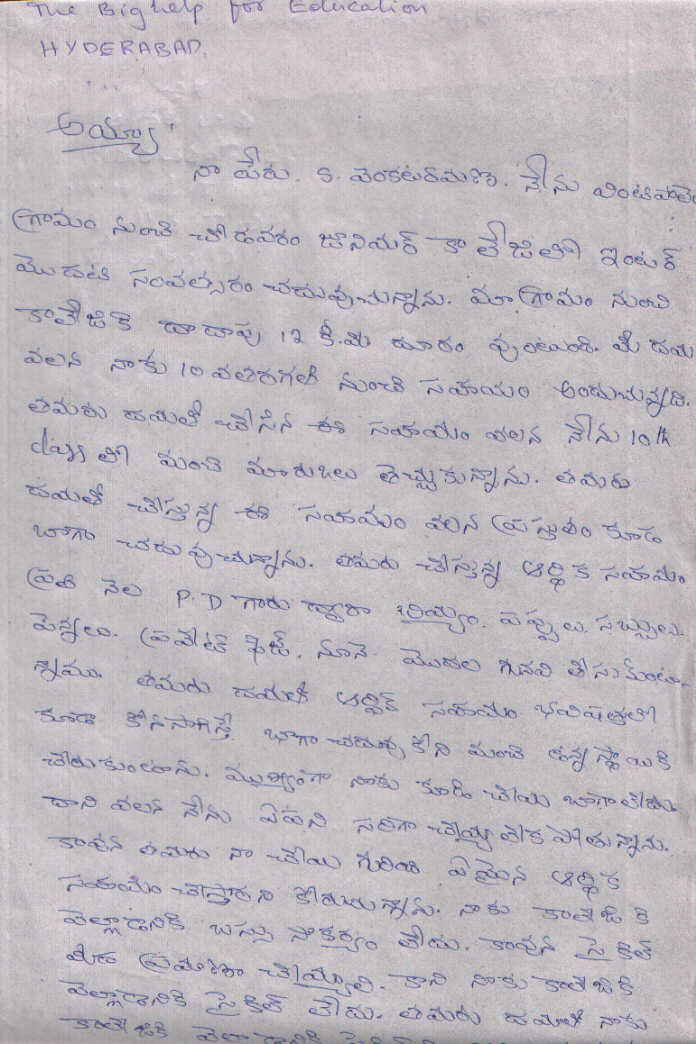 The Big help for Education
HYDERABAD.
అయ్యా
నా పేరు. కె. వెంకటరమణ. నేను
గ్రామం నుంచి చోడవరం జూనియర్ కాలేజిలో ఇంటర్
మొదటి సంవత్సరం చదువుచున్నాను. మా గ్రామం నుంచి
కాలేజికి దాదాపు 12 కి.మి దూరం వుంటుంది. మీ దయ
వలన నాకు 10 వతరగతి నుంచి సహాయం అందుచున్నది.
తమరు దయతో చేసిన ఈ సహాయం వలన నేను 10th
class లో మంచి మార్కులు తెచ్చుకున్నాను. తమరు
దయతో చేస్తున్న ఈ సహాయం వలన ప్రస్తుతం కూడా
బాగా చదువుచున్నాను. తమరు చేస్తున్న ఆర్థిక సహాయం
ప్రతి నెల P.D గారు ద్వారా బియ్యం. పప్పులు. సబ్బులు.
పెన్నులు. ప్రవేట్ ఫీజ్. నూనె మొదల గునవి తీసుకుంటు-
న్నాము. తమరు దయతో ఆర్థిక సహాయం భవిషత్తులో
కూడా కొనసాగిస్తే బాగా చదువు కొని మంచి ఉన్న స్థాయికి
చేరుకుంటాను. ముఖ్యంగా నాకు కూడి చేయి బాగాలేదు.
దాని వలన నేను ఏపని సరిగా చెయ్య లేక పోతున్నాను.
కావున తమరు నా చేయి గురించి ఏదైన ఆర్థిక
సహాయం చేస్తారని కోరుచున్నాను. నాకు కాలేజి కి
వెల్లాడానికి బస్సు సౌకర్యం లేదు. కావున సైకిల్
మీద ప్రయాణం చేయ్యాలి. కాని నాకు కాలేజికి
వెల్లాడానికి సైకిల్ లేదు. తమరు దయతో నాకు
కాలేజికి వెల్లాడానికి